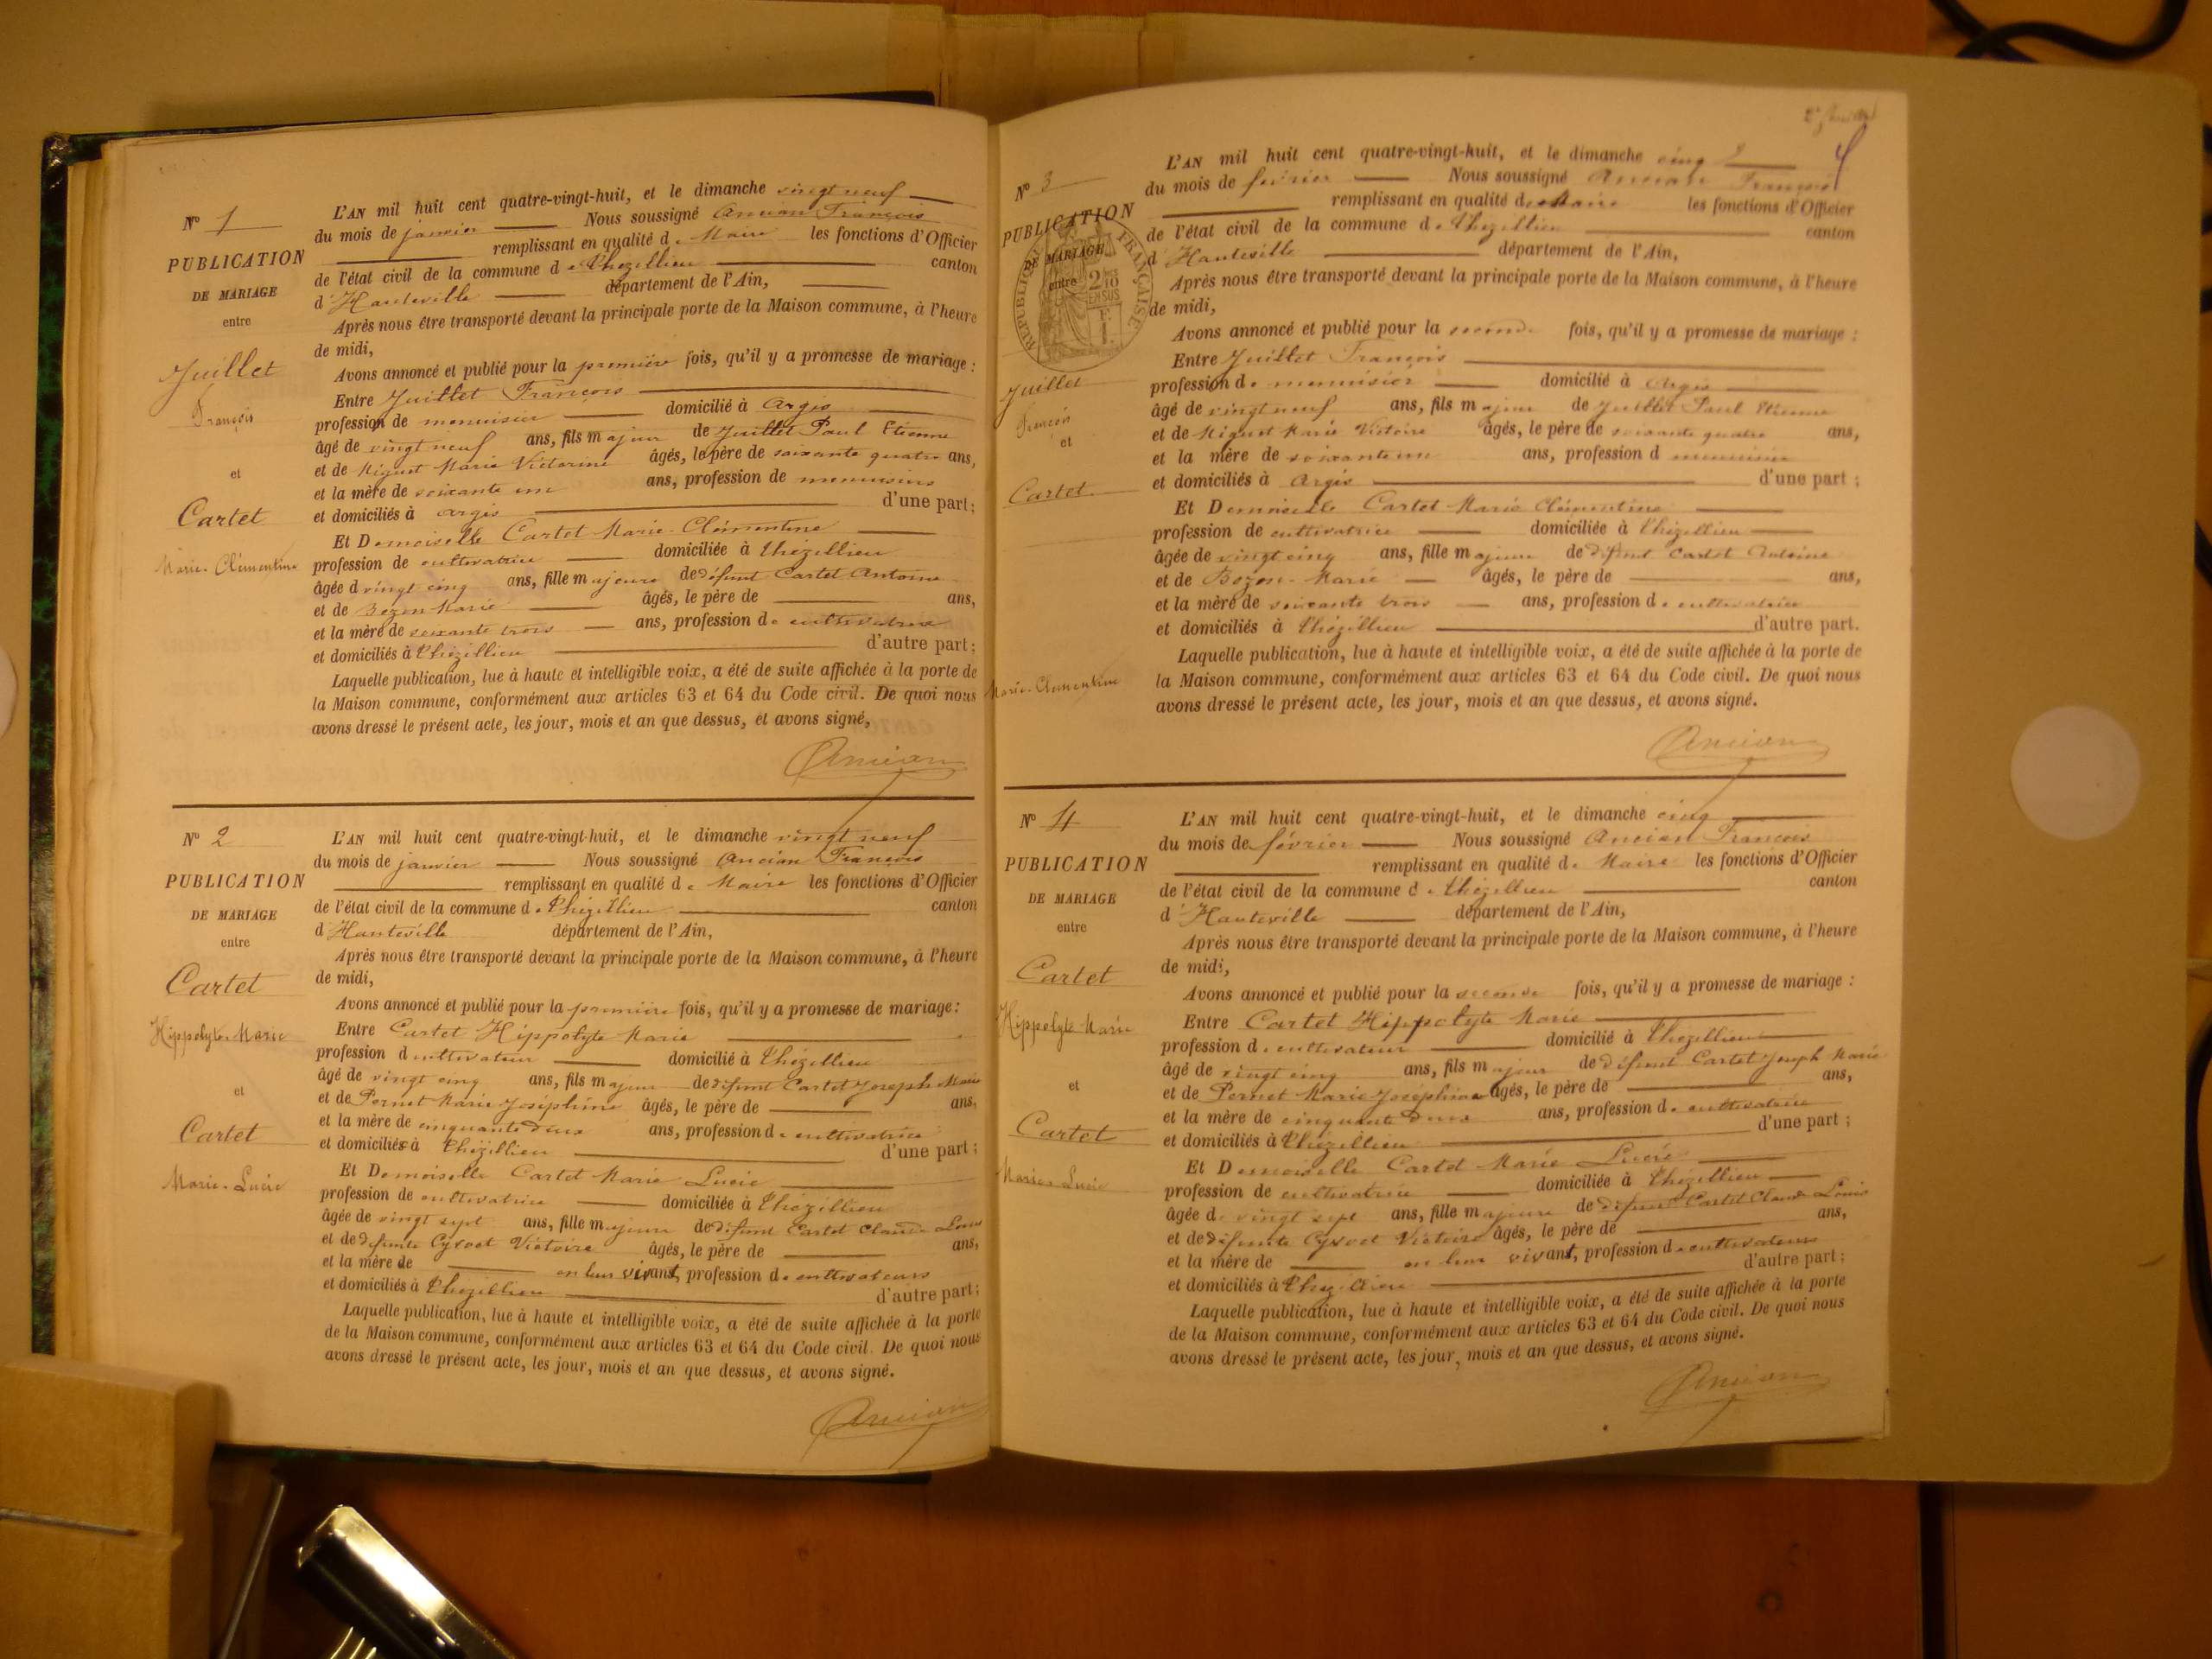 N° 1
PUBLICATION
DE MARIAGE
entre
Juillet
François
et
Cartet
Marie-Clémentine
L'AN mil huit cent quatre-vingt-huit, et le dimanche vingt neuf
du mois de janvier Nous soussigné Ancian François
remplissant en qualité de Maire les fonctions d'Officier
de l'état civil de la commune de Thézillieu canton
d'Hauteville département de l'Ain,
Après nous être transporté devant la principale porte de la Maison commune, à l'heure
de midi,
Avons annoncé et publié pour la première fois, qu'il y a promesse de mariage :
Entre Juillet François
profession de menuisier domicilié à Argis
âgé de vingt neuf ans, fils majeur de Juillet Paul Etienne
et de Miguet Marie Victorine âgés, le père de soixante quatre ans,
et la mère de soixante un ans, profession de menuisiers
et domiciliés à Argis d'une part;
Et Demoiselle Cartet Marie-Clémentine
profession de cultivatrice domiciliée à Thézillieu
âgée d vingt cinq ans, fille majeure de défunt Cartet Antoine
et de Bozon Marie âgés, le père de ans,
et la mère de soixante trois ans, profession de cultivatrice
et domiciliés à Thézillieu d'autre part;
Laquelle publication, lue à haute et intelligible voix, a été de suite affichée à la porte de
la Maison commune, conformément aux articles 63 et 64 du Code civil. De quoi nous
avons dressé le présent acte, les jour, mois et an que dessus, et avons signé,
Ancian
N° 2
PUBLICATION
DE MARIAGE
entre
Cartet
Hippolyte-Marie
et
Cartet
Marie-Lucie
L'AN mil huit cent quatre-vingt-huit, et le dimanche vingt neuf
du mois de janvier Nous soussigné Ancian François
remplissant en qualité de Maire les fonctions d'Officier
de l'état civil de la commune de Thézillieu canton
d'Hauteville département de l'Ain,
Après nous être transporté devant la principale porte de la Maison commune, à l'heure
de midi,
Avons annoncé et publié pour la première fois, qu'il y a promesse de mariage:
Entre Cartet Hippolyte Marie
profession d cultivateur domicilié à Thézillieu
âgé de vingt cinq ans, fils majeur de défunt Cartet Joseph Marie
et de Pernet Marie Joséphine âgés, le père de ans,
et la mère de cinquante deux ans, profession de cultivatrice
et domiciliés à Thézillieu d'une part;
Et Demoiselle Cartet Marie Lucie
profession de cultivatrice domiciliée à Thézillieu
âgée de vingt sept ans, fille majeure de défunt Cartet Claude Louis
et de défunte Cyvoct Victoire âgés, le père de ans,
et la mère de en leur vivant, profession de cultivateurs
et domiciliés à Thézillieu d'autre part;
Laquelle publication, lue à haute et intelligible voix, a été de suite affichée à la porte
de la Maison commune, conformément aux articles 63 et 64 du Code civil. De quoi nous
avons dressé le présent acte, les jour, mois et an que dessus, et avons signé.
Ancian
2e feuillet
N° 3
PUBLICATION
DE MARIAGE
entre
RÉPUBLIQUE FRANÇAISE
2/10
EN SUS
F.
1.
Juillet
François
et
Cartet
Marie-Clémentine
L'AN mil huit cent quatre-vingt-huit, et le dimanche cinq
du mois de février Nous soussigné Ancian François
remplissant en qualité de Maire les fonctions d'Officier
de l'état civil de la commune de Thézillieu canton
d'Hauteville département de l'Ain,
Après nous être transporté devant la principale porte de la Maison commune, à l'heure
de midi,
Avons annoncé et publié pour la seconde fois, qu'il y a promesse de mariage :
Entre Juillet François
profession de menuisier domicilié à Argis
âgé de vingt neuf ans, fils majeur de Juillet Paul Etienne
et de Miguet Marie Victoire âgés, le père de soixante quatre ans,
et la mère de soixante un ans, profession d menuisier
et domiciliés à Argis d'une part ;
Et Demoiselle Cartet Marie Clémentine
profession de cultivatrice domiciliée à Thézillieu
âgée de vingt cinq ans, fille majeure de défunt Cartet Antoine
et de Bozon-Marie âgés, le père de ans,
et la mère de soixante trois ans, profession de cultivatrice
et domiciliés à Thézillieu d'autre part.
Laquelle publication, lue à haute et intelligible voix, a été de suite affichée à la porte de
la Maison commune, conformément aux articles 63 et 64 du Code civil. De quoi nous
avons dressé le présent acte, les jour, mois et an que dessus, et avons signé.
Ancian
N° 4
PUBLICATION
DE MARIAGE
entre
Cartet
Hippolyte-Marie
et
Cartet
Marie-Lucie
L'AN mil huit cent quatre-vingt-huit, et le dimanche cinq
du mois de février Nous soussigné Ancian François
remplissant en qualité de Maire les fonctions d'Officier
de l'état civil de la commune de Thézillieu canton
d'Hauteville département de l'Ain,
Après nous être transporté devant la principale porte de la Maison commune, à l'heure
de midi,
Avons annoncé et publié pour la seconde fois, qu'il y a promesse de mariage :
Entre Cartet Hippolyte Marie
profession de cultivateur domicilié à Thézillieu
âgé de vingt cinq ans, fils majeur de défunt Cartet Joseph Marie
et de Pernet Marie-Joséphine âgés, le père de ans,
et la mère de cinquante deux ans, profession de cultivatrice
et domiciliés à Thézillieu d'une part ;
Et Demoiselle Cartet Marie Lucie
profession de cultivatrice domiciliée à Thézillieu
âgée de vingt sept ans, fille majeure de défunt Cartet Claude Louis
et de défunte Cyvoct Victoire âgés, le père de ans,
et la mère de en leur vivant, profession de cultivateurs
et domiciliés à Thézillieu d'autre part ;
Laquelle publication, lue à haute et intelligible voix, a été de suite affichée à la porte
de la Maison commune, conformément aux articles 63 et 64 du Code civil. De quoi nous
avons dressé le présent acte, les jour, mois et an que dessus, et avons signé.
Ancian